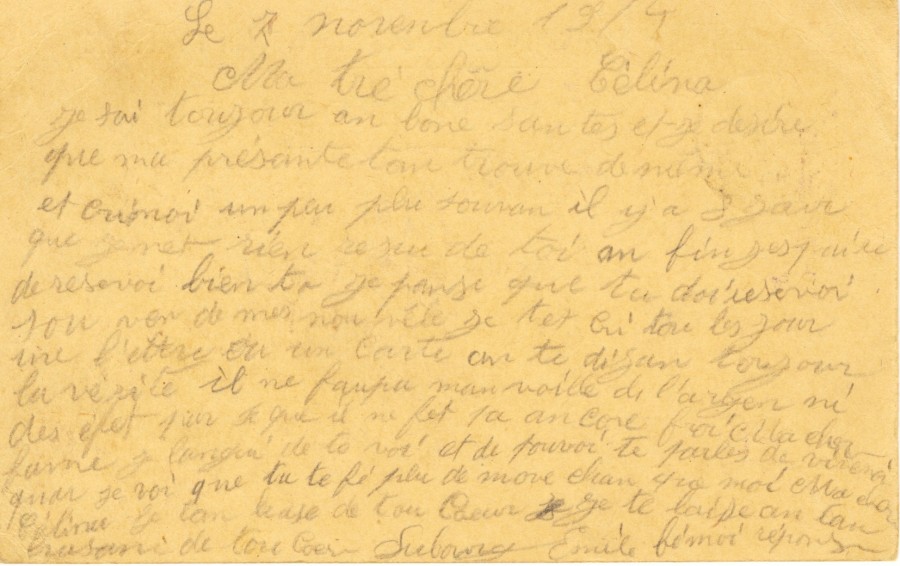 Le 7 novenbre 1914
Ma tré chère Célina
je sui toujour an bone santes et je désire
que ma présante tan trouve de même
et écrimoi un peu plu souvan il y a 8 jour
que je net rien resu de toi an fin jespaire
de resevoi bien to je panse que tu doi resevoi
souven de mes nouvèle je tes cri tou les jour
une l'èttre ou un carte an te dizan toujour
la vérité il ne faupa manvoillé de l'argen ni
des éfet par se que il ne fet pa ancore froi Ma cher
fame je langui de to voi et de pouvoi te parlés de vive voi
quar je voi que tu te fé plu de move chan que moi Ma cher
Célina je tan brase de tou Coeur je te laise an tan
brasan de tou Coeur Emile fémoi répons